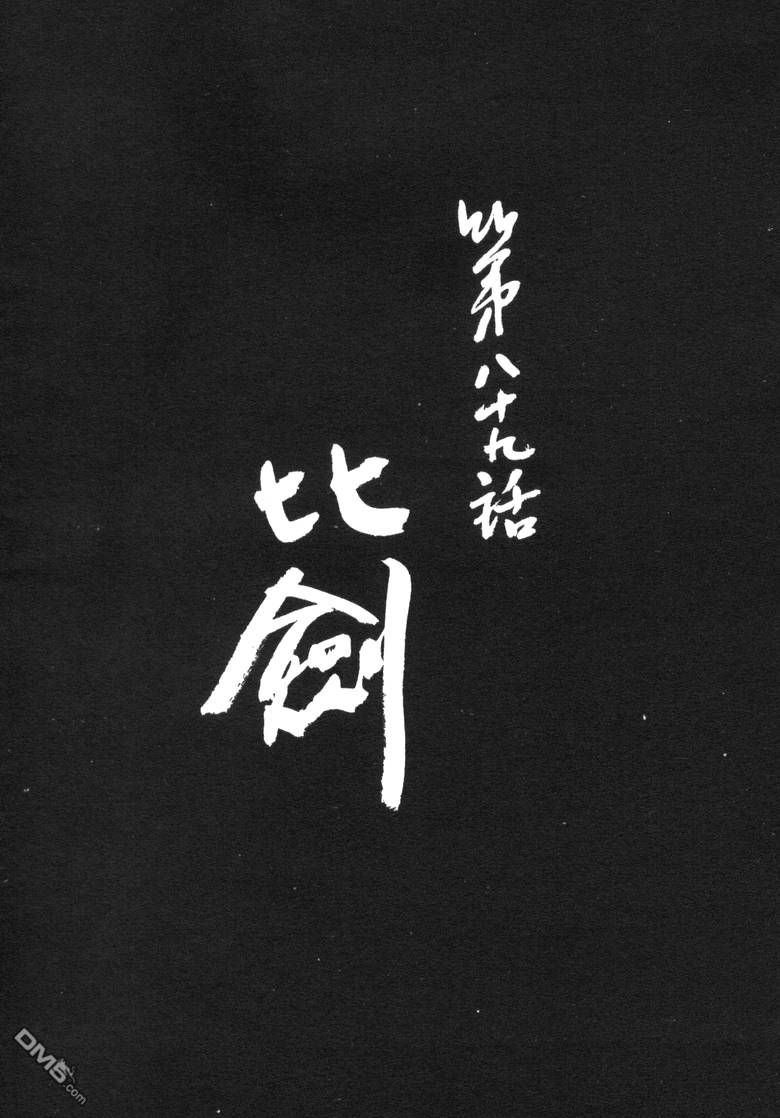 第八十九話
比劍
DM5.com